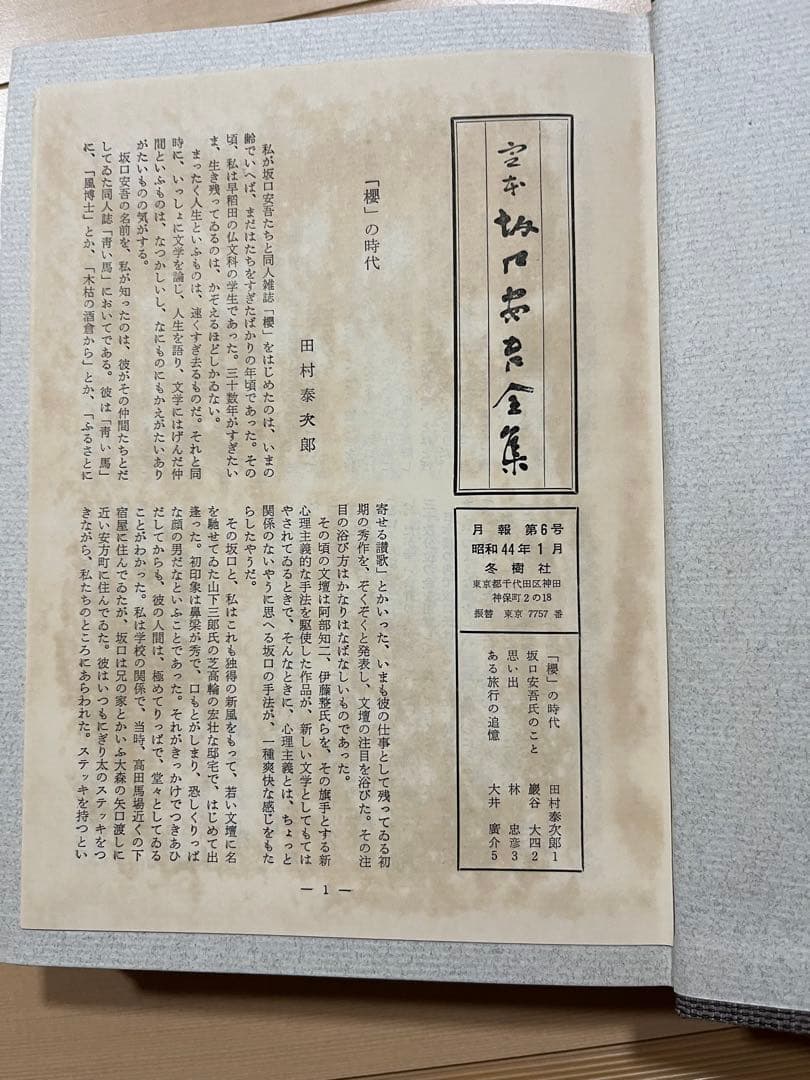 定本 坂口安吾全集
月報 第6号
昭和44年1月
冬樹社
東京都千代田区神田
神保町2の18
振替 東京 7757 番
「櫻」の時代 田村泰次郎 1
坂口安吾氏のこと 巖谷大四 2
思い出 林忠彦 3
ある旅行の追憶 大井廣介 5
「櫻」の時代
田村泰次郎
私が坂口安吾たちと同人雑誌「櫻」をはじめたのは、いまの
齢でいへば、まだはたちをすぎたばかりの年頃であった。その
頃、私は早稲田の仏文科の学生であった。三十数年がすぎたい
ま、生き残ってゐるのは、かぞえるほどしかゐない。
まったく人生といふものは、速くすぎ去るものだ。それと同
時に、いっしょに文学を論じ、人生を語り、文学にはげんだ仲
間といふものは、なつかしいし、なにものにもかえがたいあり
がたいものの気がする。
坂口安吾の名前を、私が知ったのは、彼がその仲間たちとだ
してゐた同人誌「青い馬」においてである。彼は「青い馬」
に、「風博士」とか、「木枯の酒倉から」とか、「ふるさとに
寄せる讃歌」とかいった、いまも彼の仕事として残ってゐる初
期の秀作を、ぞくぞくと発表し、文壇の注目を浴びた。その注
目の浴び方はかなりはなばなしいものであった。
その頃の文壇は阿部知二、伊藤整氏らを、その旗手とする新
心理主義的な手法を駆使した作品が、新しい文学としてもては
やされてゐるときで、そんなときに、心理主義とは、ちょっと
関係のないやうに思へる坂口の手法が、一種爽快な感じをもた
らしたやうだ。
その坂口と、私はこれも独得の新風をもって、若い文壇に名
を馳せてゐた山下三郎氏の芝高輪の宏壮な邸宅で、はじめて出
逢った。初印象は鼻梁が秀で、口もとがしまり、恐しくりっぱ
な顔の男だなといふことであった。それがきっかけでつきあひ
だしてからも、彼の人間は、極めてりっぱで、堂々としてゐる
ことがわかった。私は学校の関係で、当時、高田馬場近くの下
宿屋に住んでゐたが、坂口は兄の家とかいふ大森の矢口渡しに
近い安方町に住んでゐた。彼はいつもにぎり太のステッキをつ
きながら、私たちのところにあらわれた。ステッキを持つとい
— 1 —